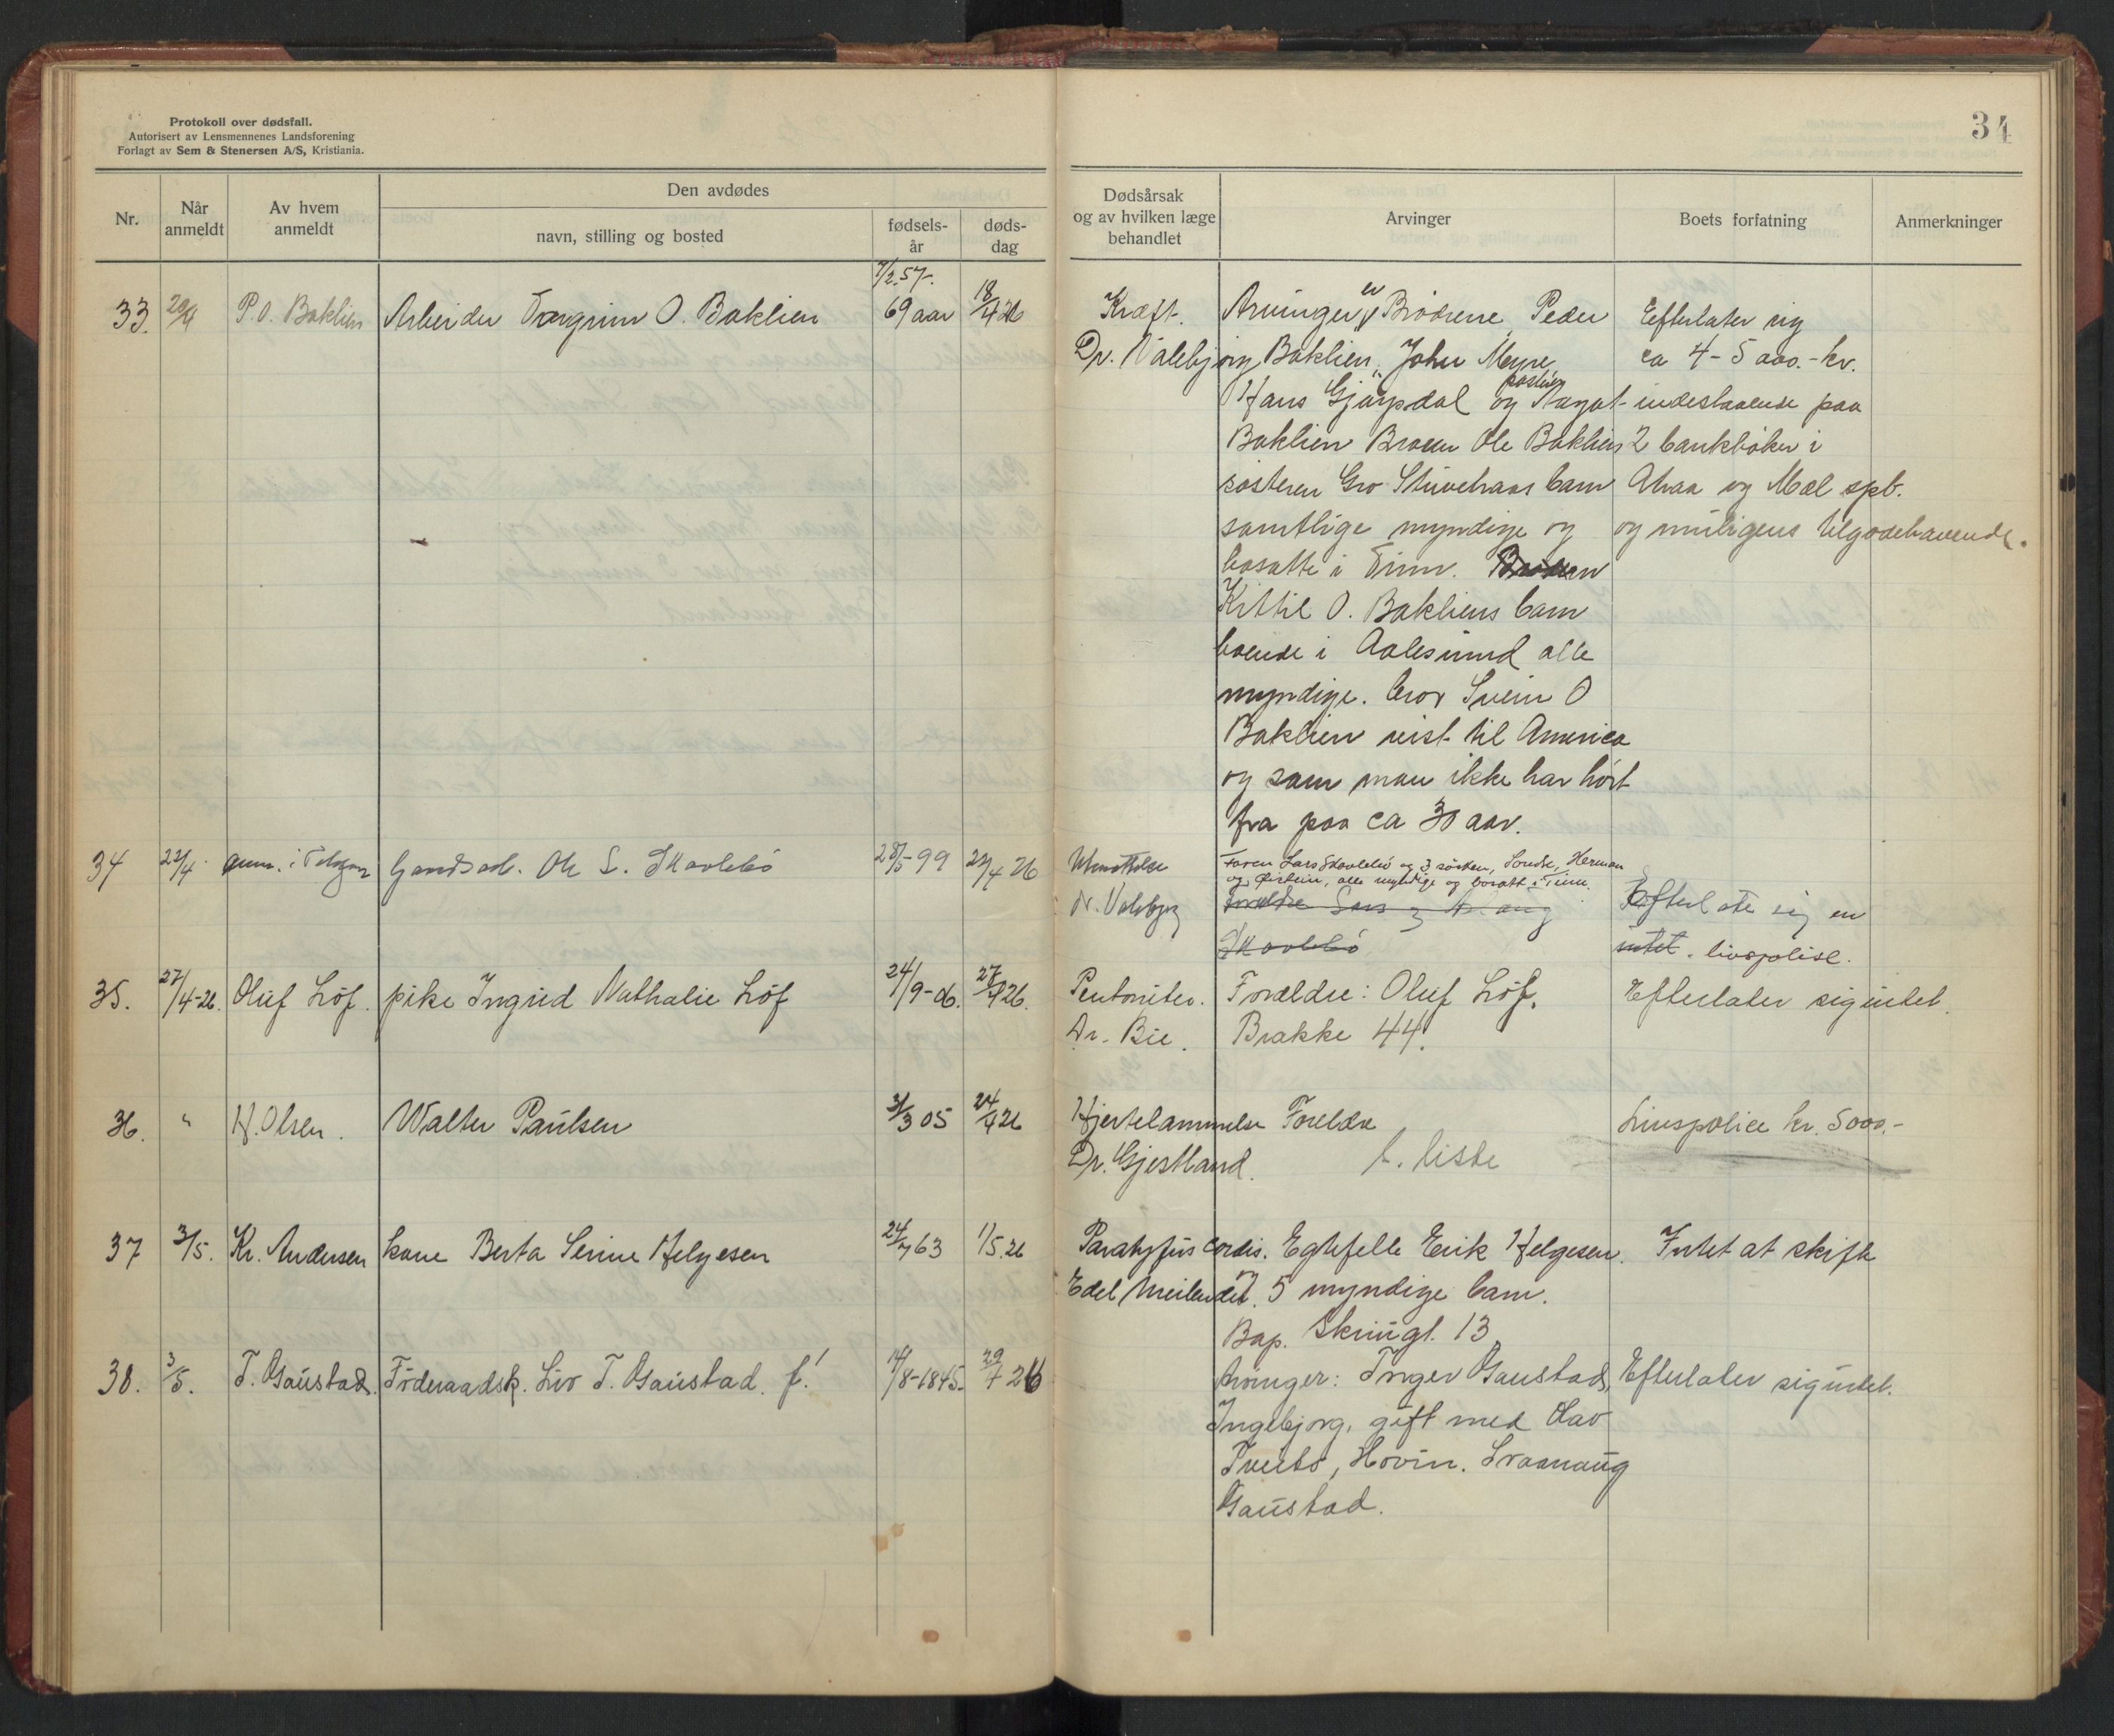 Protokoll over dødsfall.
Autorisert av Lensmennenes Landsforening
Forlagt av Sem & Stenersen A/S, Kristiania.
34
Nr.
Når anmeldt
Av hvem anmeldt
Den avdødes
navn, stilling og bosted
fødsels-år
døds-dag
Dødsårsak og av hvilken læge behandlet
Arvinger
Boets forfatning
Anmerkninger
33. P.O. Baklien Arbeider Torgrim O. Baklien 7/2.57. 69 aar 18/4 26
Kræft.
Dr. Valebjørg
Arvinger er Brødrene Peder
Baklien, John Myre,
Hans Gjøysdal og
Baklien Broren Ole Bakliens
søsteren Gro Stuvehaas barn
samtlige myndige og
bosatte i Tinn.
Kittil O. Bakliens barn
boende i Aalesund alle
myndige. bror Svein O
Baklien reist til America
og som man ikke har hørt
fra paa ca 30 aar.
Efterlater sig
ca 4-5 000.- kr.
indestaaende paa
2 bankbøker i
Atraa og Mæl spb.
og muligens tilgodehavende.
34 22/4 anm. i Telefon Gaardsarb. Ole L. Skavlebø 28/5-99 22/4 26
dr. Valebjørg
Faren Lars Skavlebø og 3 søsken, Sondre, Herman
og Øistein, alle myndige og bosatt i Tinn.
Skavlebø
Efterlate sig en
intet. livspolise.
35. 27/4-26. Oluf Löf. pike Ingrid Nathalie Löf 24/9-06. 27/4 26.
Peritoniter.
Dr. Bie.
Forældre: Oluf Löf.
Brakke 44.
Efterlater sig intet.
36. " H. Olsen. Walter Paulsen 31/3 05 24/4 26
Hjertelammelse
Dr. Gjestland.
Foreldre
t. liste
Livspolice kr. 5000.-
37 3/5. Kr. Andersen kone Berta Serine Helgesen 24/7 63 1/5.26
Paratyfus cordis.
Edel Meilandet.
Egtefelle Erik Helgesen.
og 5 myndige barn.
Bap. Skriugt. 13
Intet at skifte
38. 3/5. T. Gaustad. Föderaadsk. Liv T. Gaustad. f! 14/8-1845. 29/4 26
Arvinger: Torger Gaustad,
Ingebjørg, gift med Olav
Tveito, Hovin. Svaanaug
Gaustad.
Efterlater sig intet.